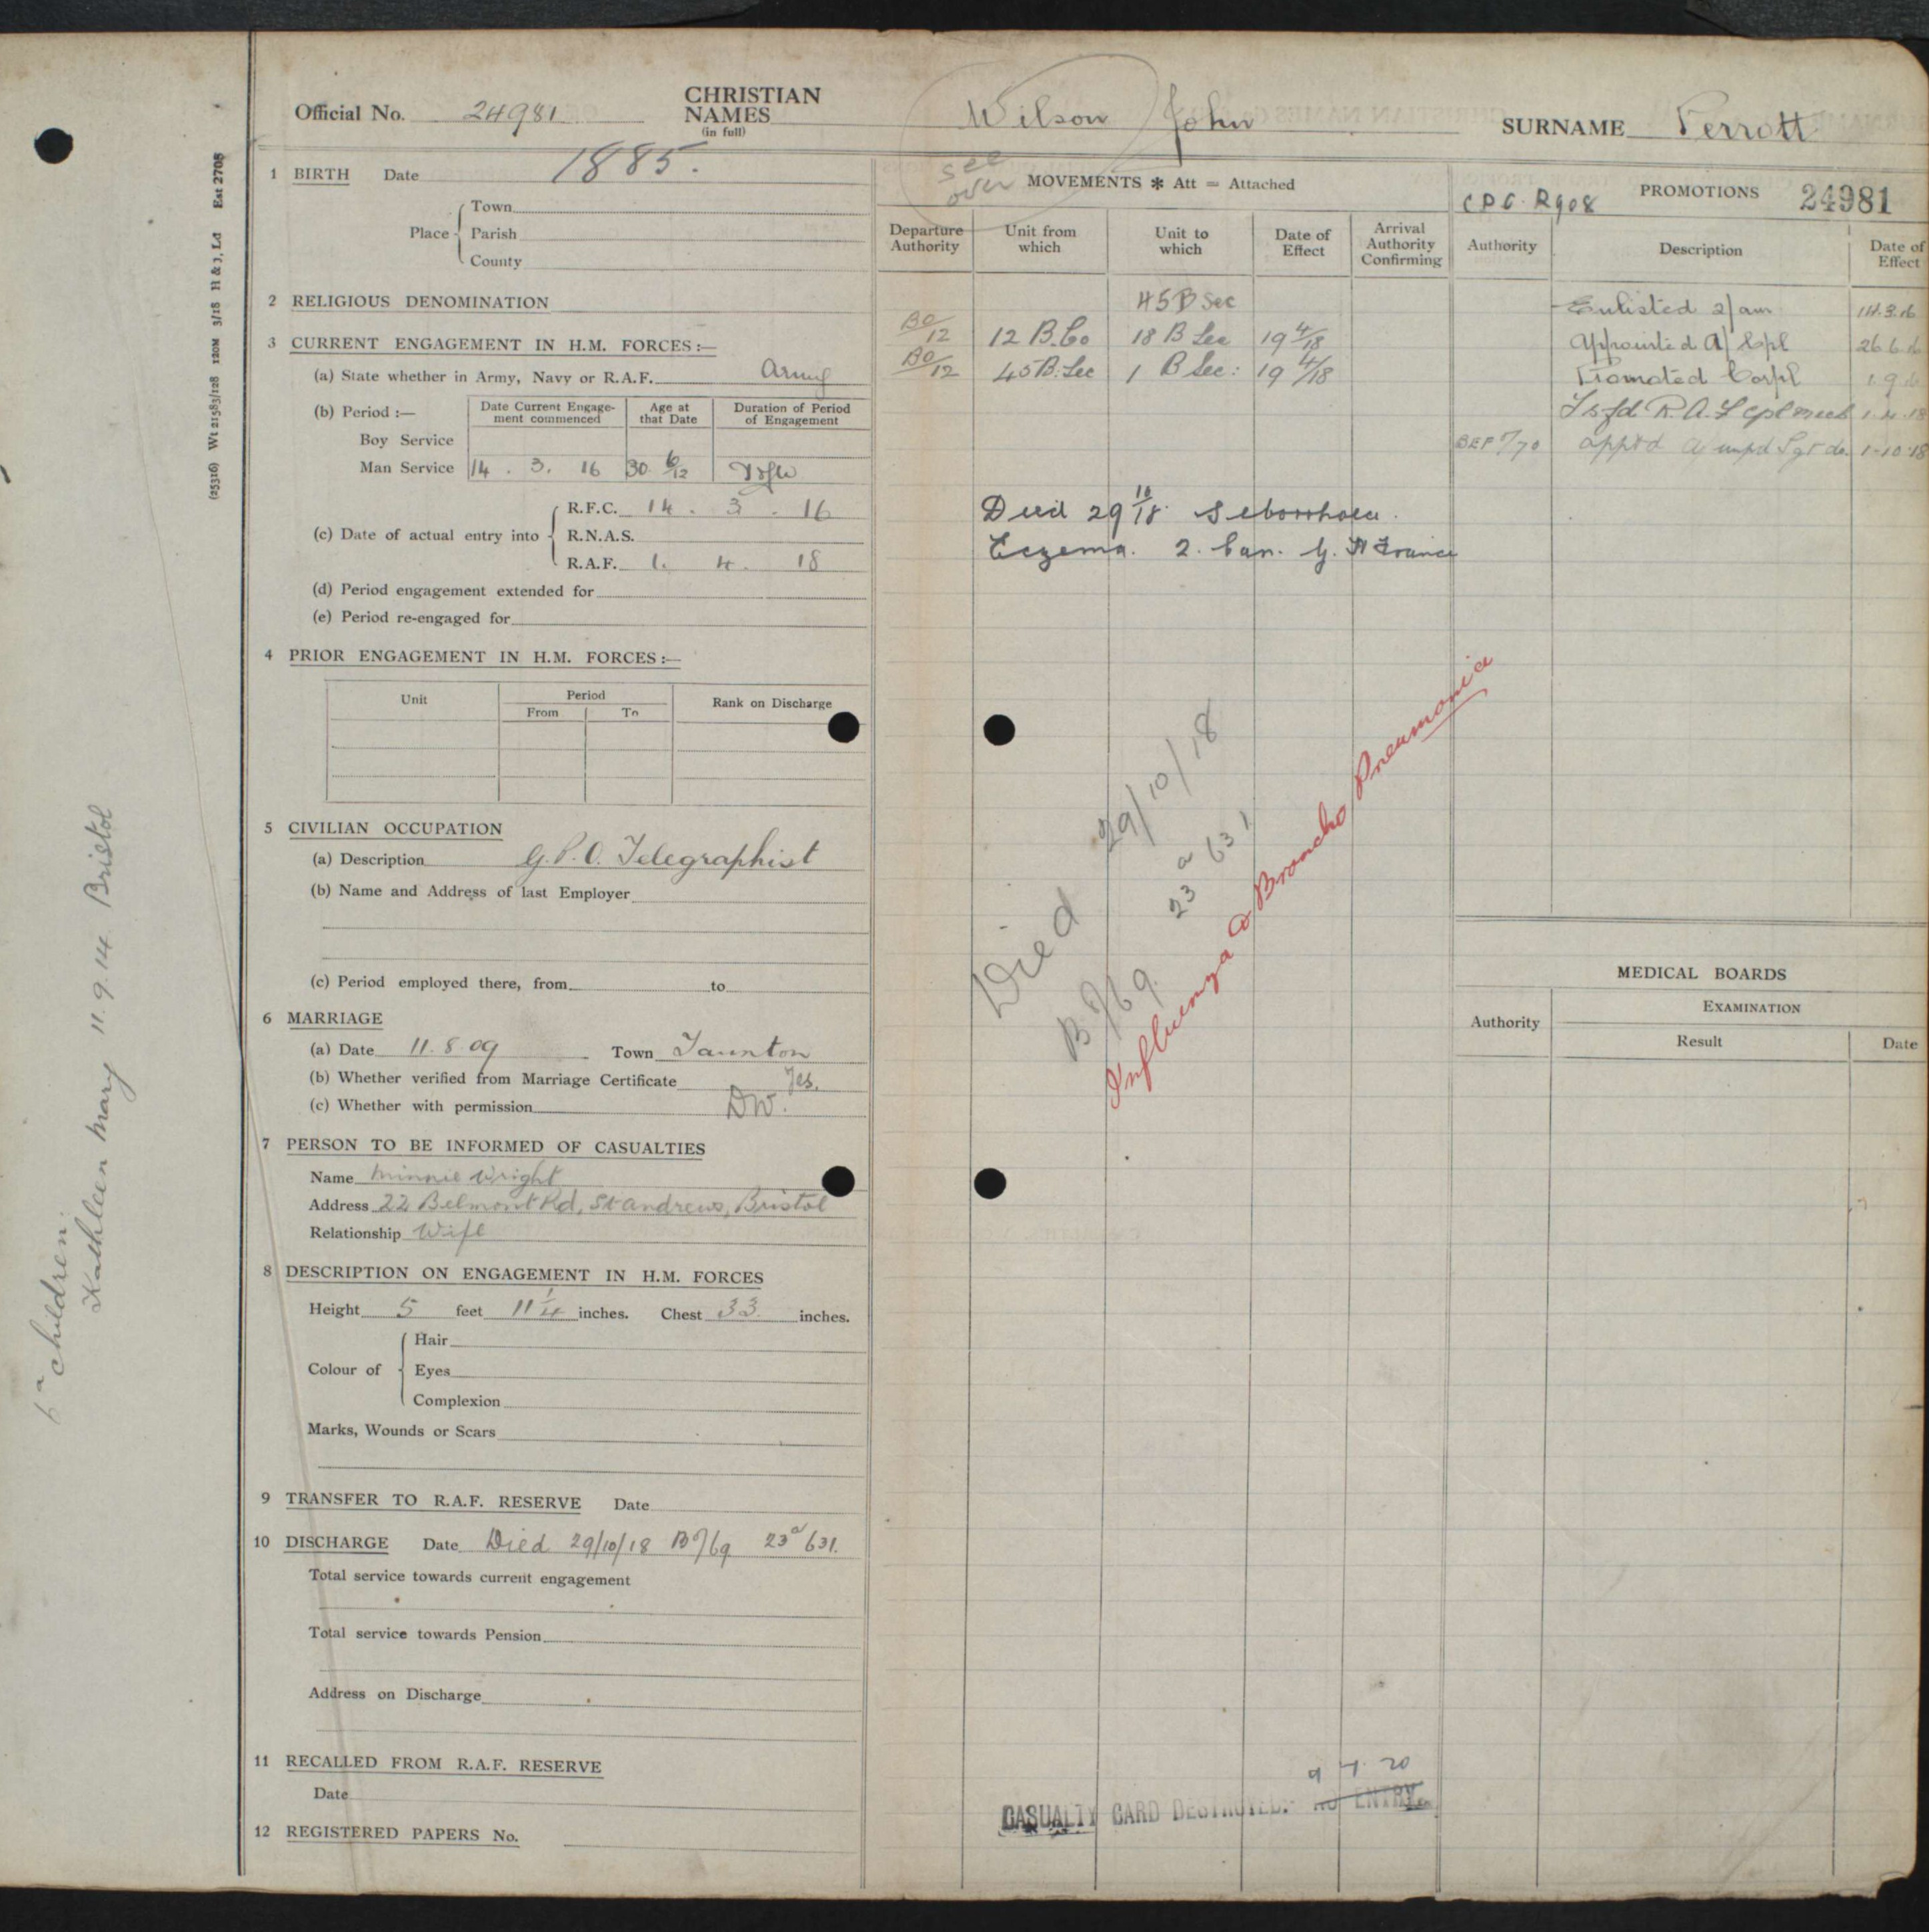 Official No. 24981 CHRISTIAN NAMES (in full) Wilson John SURNAME Perrott
(25316) Wt 21583/128 120M 3/18 H & J, Ld Est 2708
1 BIRTH Date 1885.
Place Town
Parish
County
2 RELIGIOUS DENOMINATION
3 CURRENT ENGAGEMENT IN H.M. FORCES:—
(a) State whether in Army, Navy or R.A.F. Army
(b) Period :— Date Current Engagement commenced Age at that Date Duration of Period of Engagement
Boy Service
Man Service 14 . 3. 16 30 6/12
(c) Date of actual entry into R.F.C. 14 . 3 . 16
R.N.A.S.
R.A.F. 1. 4. 18
(d) Period engagement extended for
(e) Period re-engaged for
4 PRIOR ENGAGEMENT IN H.M. FORCES:—
Unit Period Rank on Discharge
From To
5 CIVILIAN OCCUPATION
(a) Description G.P.O. Telegraphist
(b) Name and Address of last Employer
(c) Period employed there, from to
6 MARRIAGE
(a) Date 11.8.09 Town Taunton
(b) Whether verified from Marriage Certificate Yes.
(c) Whether with permission DW.
7 PERSON TO BE INFORMED OF CASUALTIES
Name Minnie Wright
Address 22 Belmont Rd, St Andrews, Bristol
Relationship Wife
8 DESCRIPTION ON ENGAGEMENT IN H.M. FORCES
Height 5 feet 11 1/4 inches. Chest 33 inches.
Colour of Hair
Eyes
Complexion
Marks, Wounds or Scars
9 TRANSFER TO R.A.F. RESERVE Date
10 DISCHARGE Date Died 29/10/18 B7/69 23a/631.
Total service towards current engagement
Total service towards Pension
Address on Discharge
11 RECALLED FROM R.A.F. RESERVE
Date
12 REGISTERED PAPERS No.
children:
Kathleen Mary 11.9.14 Bristol
see over
MOVEMENTS * Att = Attached
Departure Authority Unit from which Unit to which Date of Effect Arrival Authority Confirming
45 B Sec
BO/12 12 B.Co 18 B Sec 19 4/18
BO/12 45 B. Sec 1 B Sec: 19 4/18
Died 29 10/18 Seborrhoea.
Eczema. 2. Can. G. H France
Died 29/10/18
B7/69 23a 631
Influenza & Broncho Pneumonia
9 4 20
CASUALTY CARD DESTROYED. NO ENTRY.
C.P.O. R908 PROMOTIONS 24981
Authority Description Date of Effect
Enlisted 2/am 14.3.16
Appointed A/Cpl 26.6.16
Promoted Corpl 1.9.16
Tsfd R.A.F cpl mech 1.4.18
BEF 7/70 appt'd A/unpd Sgt do 1.10.18
MEDICAL BOARDS
Authority EXAMINATION
Result Date